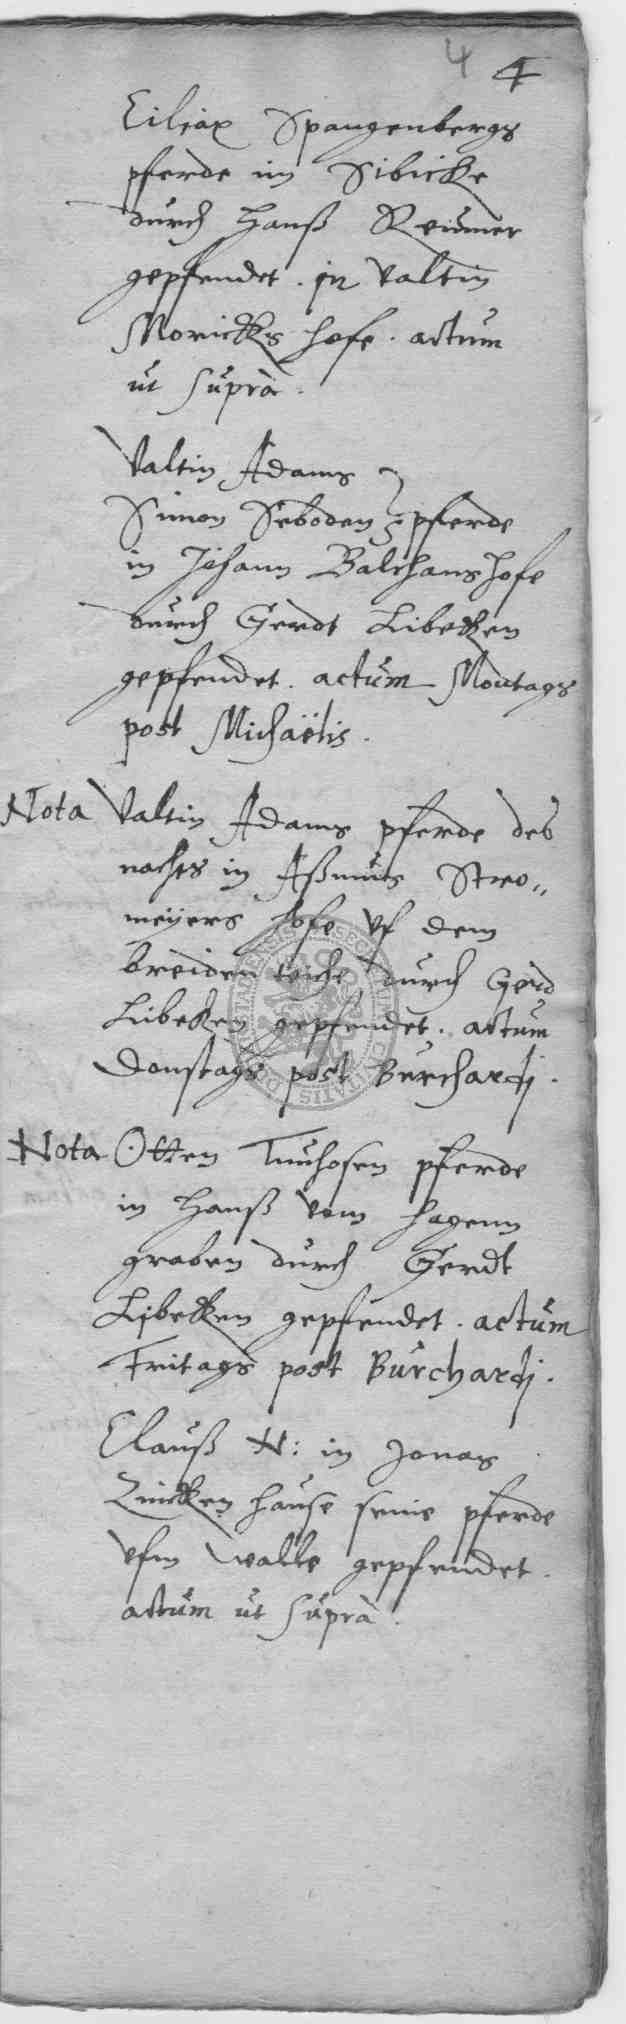 4 4
Ciliax Spangenbergs
pferde im Sibicke
durch Hanß Reumer
gepfendet. in Valtin
Morickks hofe. actum
ut suprà.
Valtin Adams
Simon Seboden } pferde
in Johann Balthans hofe
durch Gerdt Libekken
gepfendet. actum Montags
post Michaëlis.
Nota Valtin Adams pferde des
nachts in Aßmus Stro„
meyers hofe uf dem
breiden teiche durch Gerd
Libekken gepfendet. actum
Donstags post Burchardj.
Nota Otten pferde
in Hanß vom Hagenn
graben durch Gerdt
Lijbekken gepfendet. actum
Fritags post Burchardj.
Clauß N: in Jonas
Zinckken hause seine pferde
vfm walle gepfendet.
actum ut suprà.